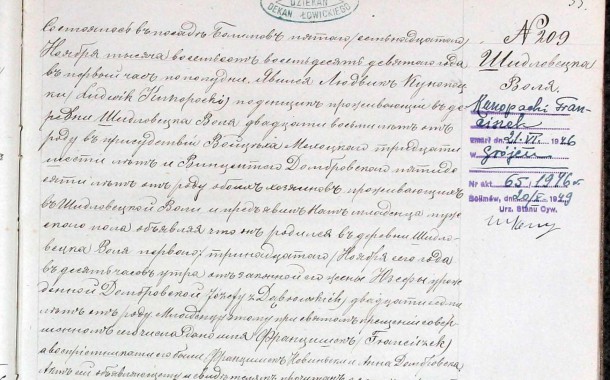 DZIEKAN
DEKAN ŁOWICKIEGO
Состоялось въ посадѣ Болимовѣ пятаго /семьнадцатаго/
Ноября тысяча восемьсотъ восемьдесять девятаго года
въ первый часъ по полудни. Явился Людвикъ Кукопац-
ки /Ludwik / поденщикъ проживающій въ де-
ревни Шидловецка Воля двадцати восьми лѣтъ отъ
роду въ присутствіи Войцѣха тридцати
шести лѣтъ и Винцентаго Домбровскаго пятиде-
сяти лѣтъ отъ роду обоихъ хозяиновъ проживающихъ
въ Шидловецкой Воли и предъявилъ намъ младенца муж-
скаго пола объявляя что онъ родился въ деревни Шидло-
вецка Воля перваго /тринадцатаго/ Ноября сего года
въ десять часовъ утра отъ законной его жены Юзефы урож-
денной Домбровской /Józefy z Dąbrowskich/ двадцати
лѣтъ отъ роду. Младенцу этому при святомъ крещеніи совер-
шонномъ сего числа дано имя Францишекъ /Franciszek/
а воспріемниками его были Францишекъ и Анна Домбровска.
Актъ сей объявляющему и свидѣтелямъ прочитанъ
№ 209
Шидловецка
Воля.
Fran-
ciszek
zmarł dn. 21. VI. 1976
w Grójcu
Nr akt 65/1976 r.
Bolimów, dn. 20/X 19
Urz. Stanu Cyw.